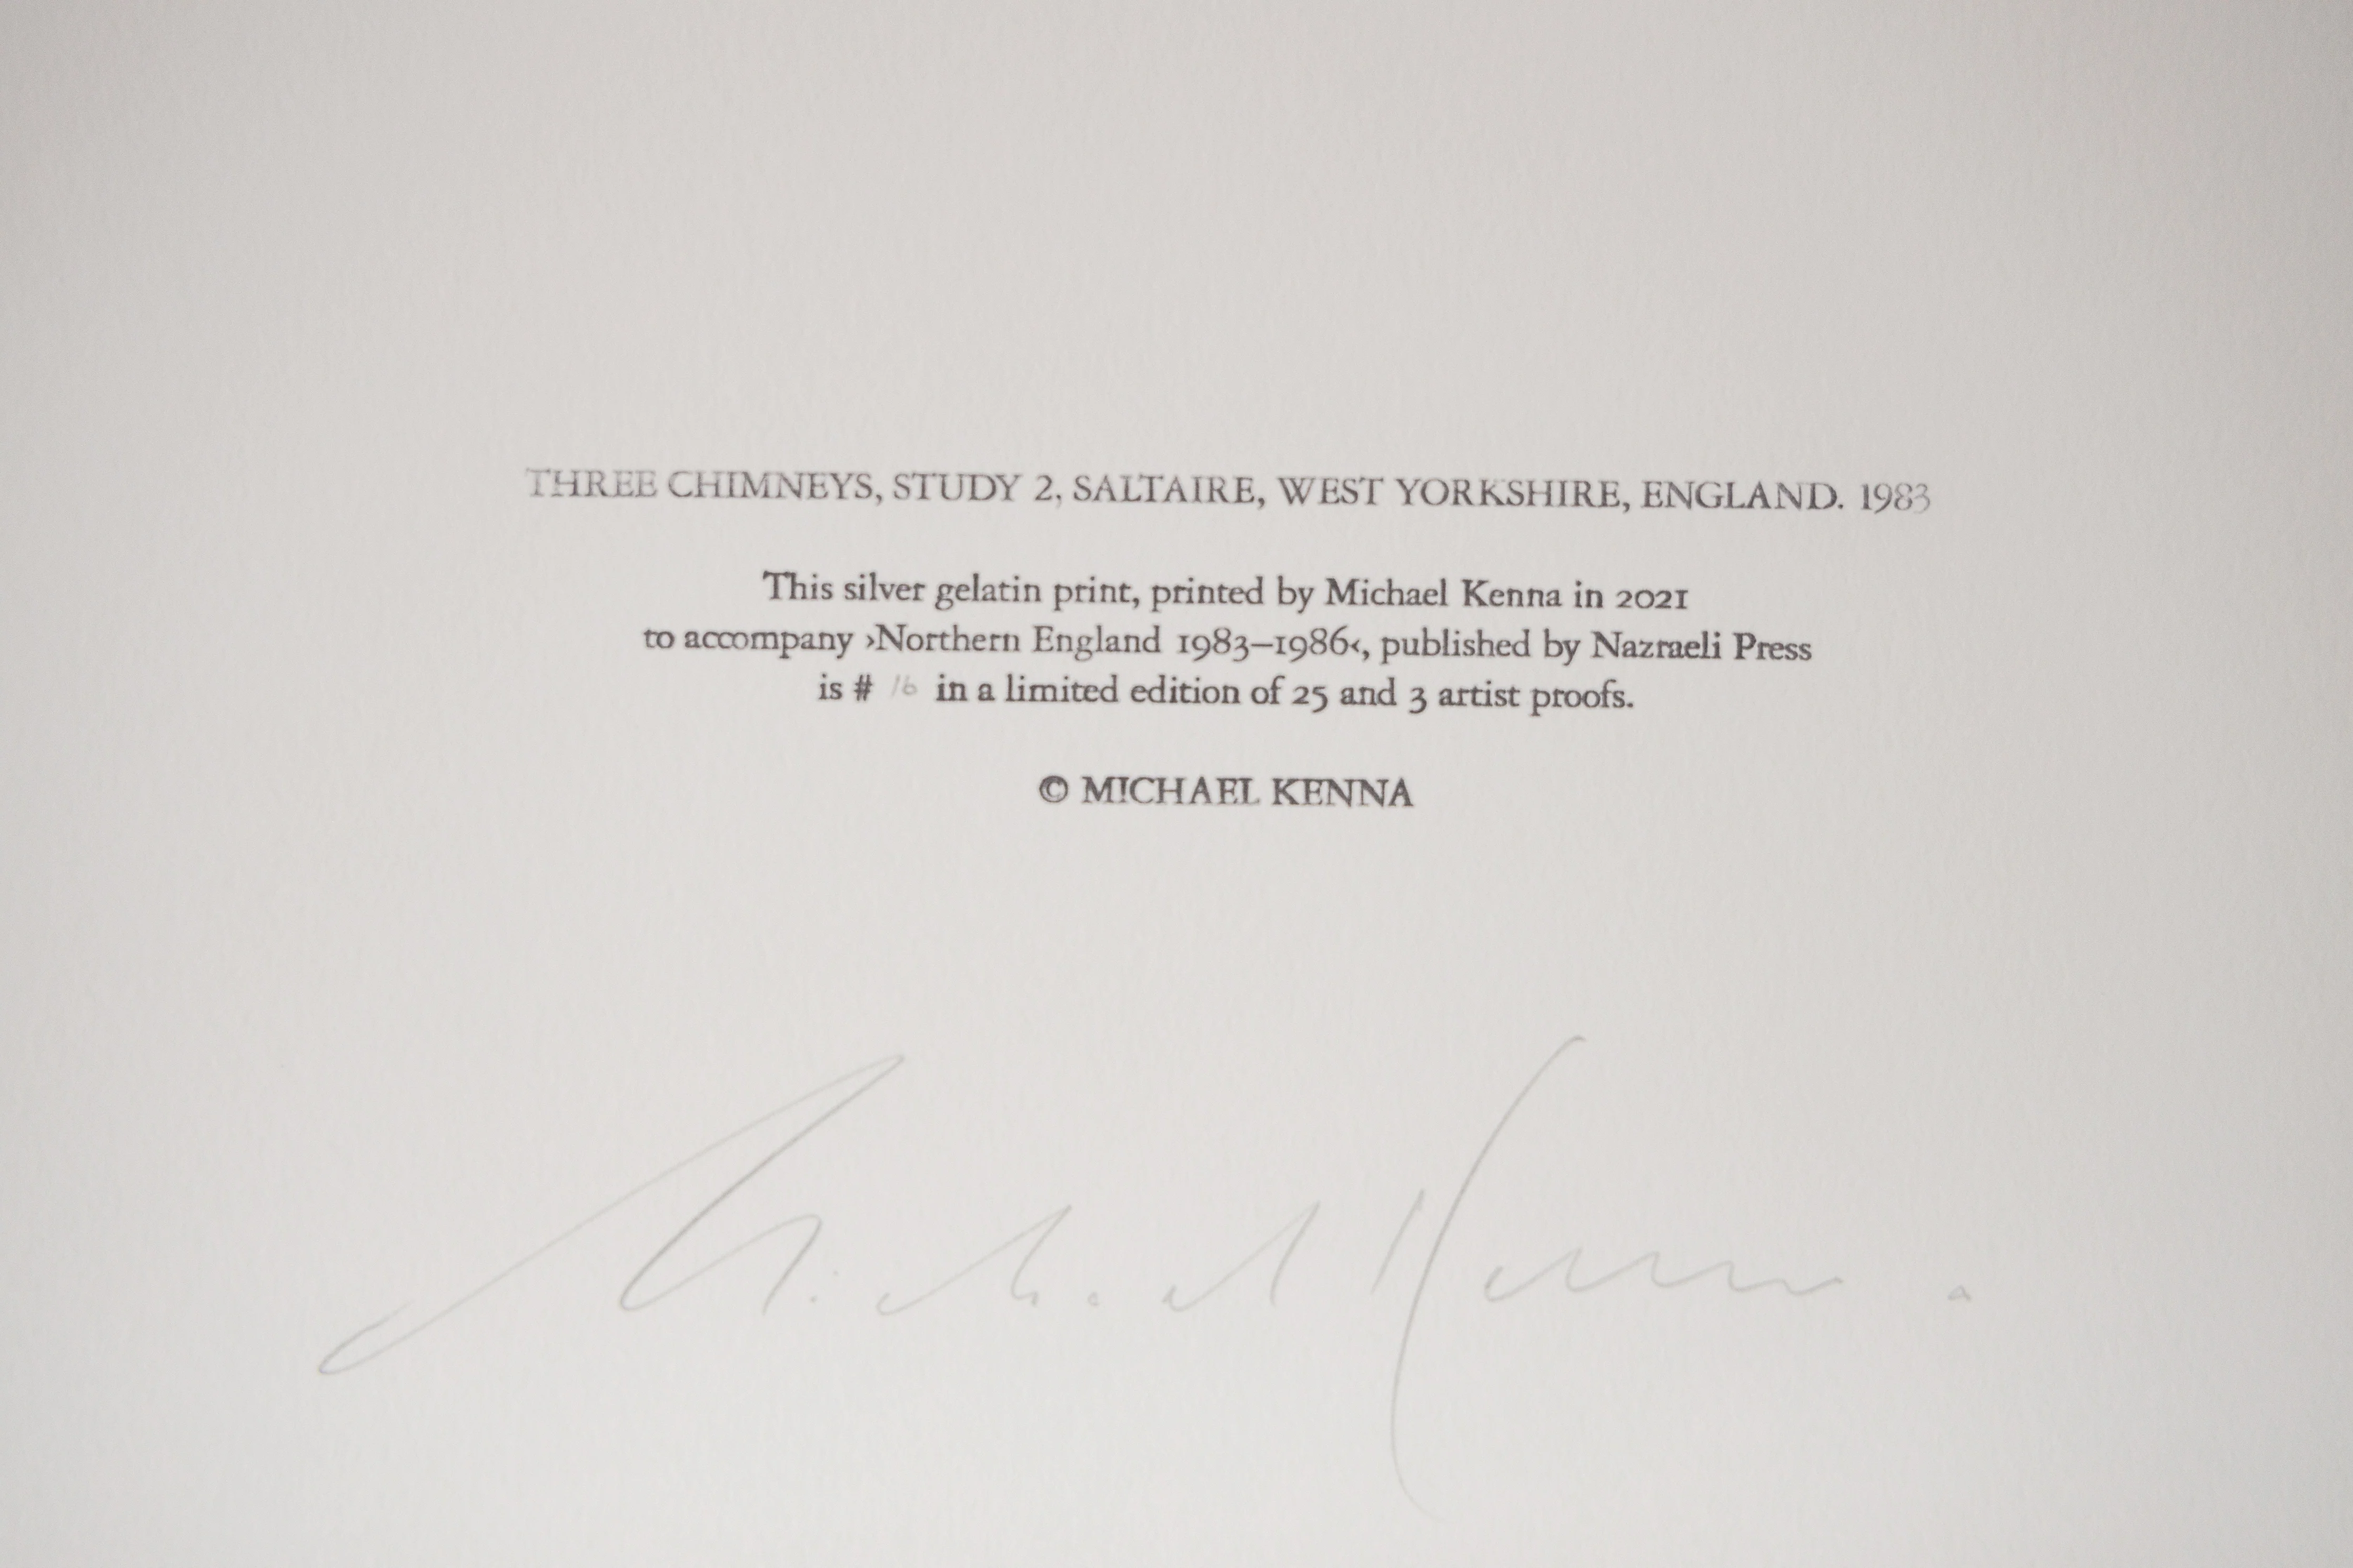 THREE CHIMNEYS, STUDY 2, SALTAIRE, WEST YORKSHIRE, ENGLAND. 1983
This silver gelatin print, printed by Michael Kenna in 2021
to accompany ›Northern England 1983–1986‹, published by Nazraeli Press
is # 16 in a limited edition of 25 and 3 artist proofs.
© MICHAEL KENNA
Michael Kenna